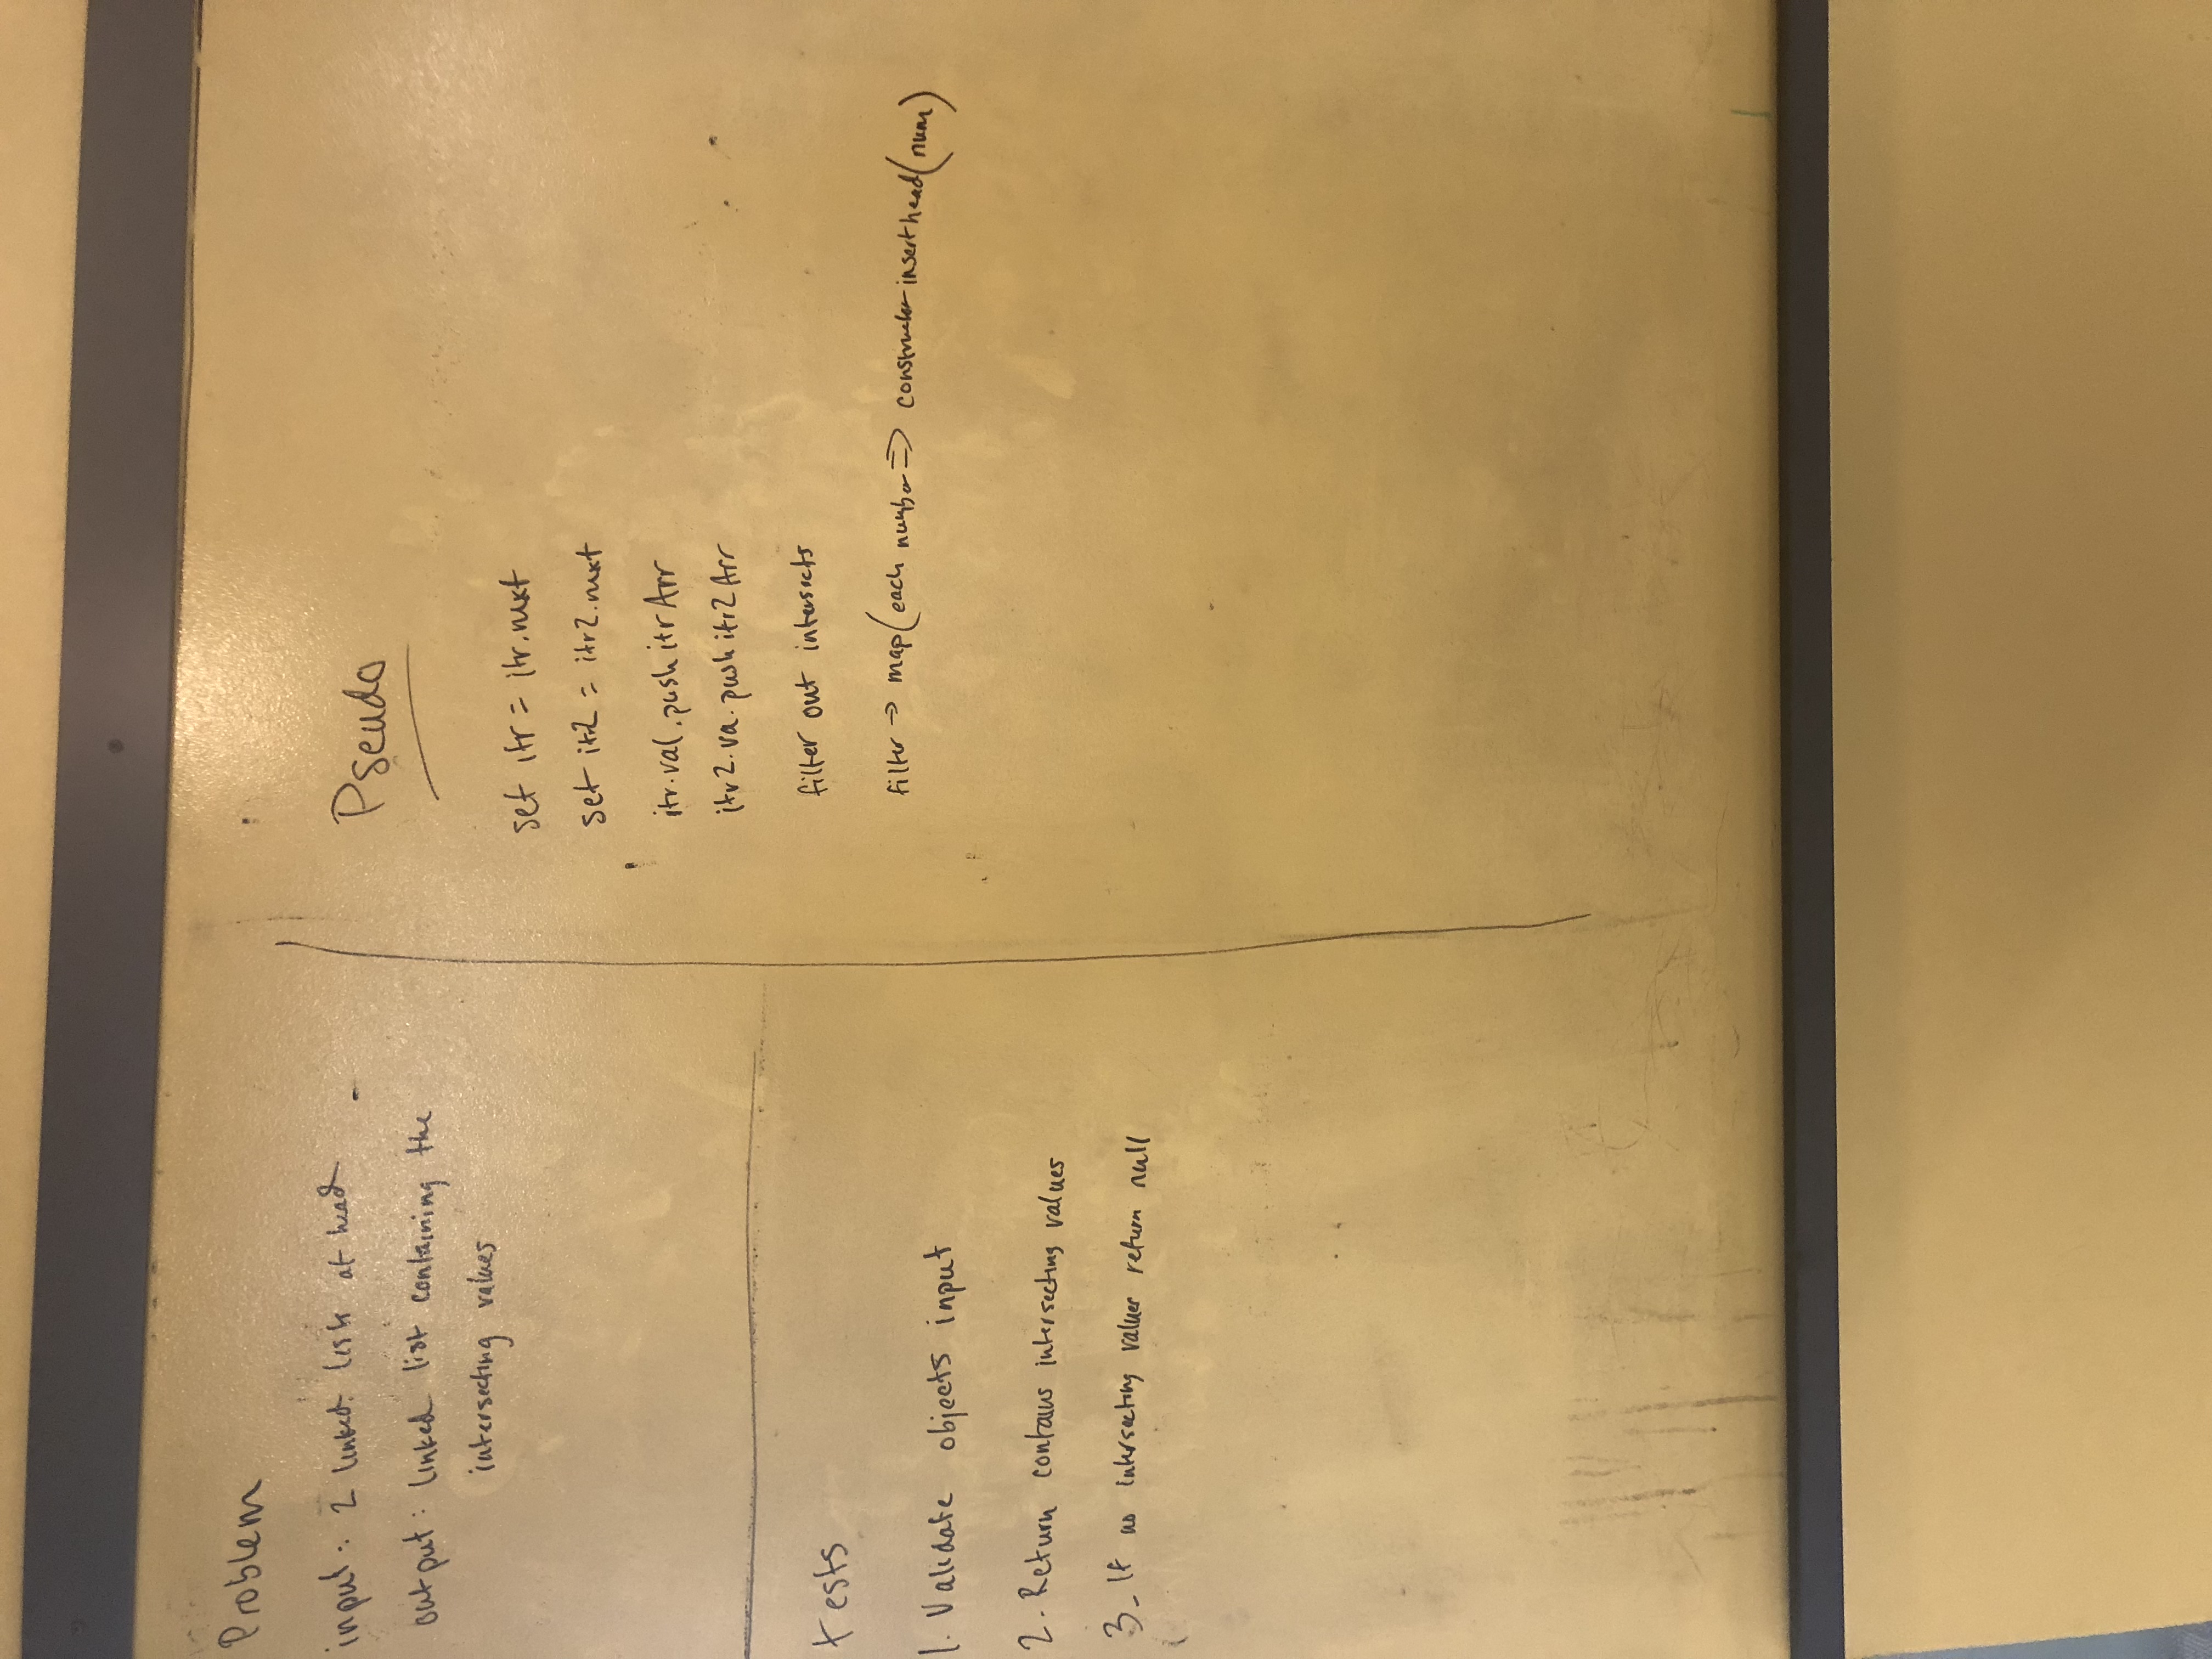 Problem
input: 2 linked lists at head
output: linked list containing the
intersecting values
tests
1. Validate objects input
2. Return contains intersecting values
3. If no intersecting values return null
Pseudo
set itr = itr.next
set itr2 = itr2.next
itr.val.push itrArr
itr2.va.push itr2Arr
filter out intersects
filter → map(each number => constructor insert head(num)